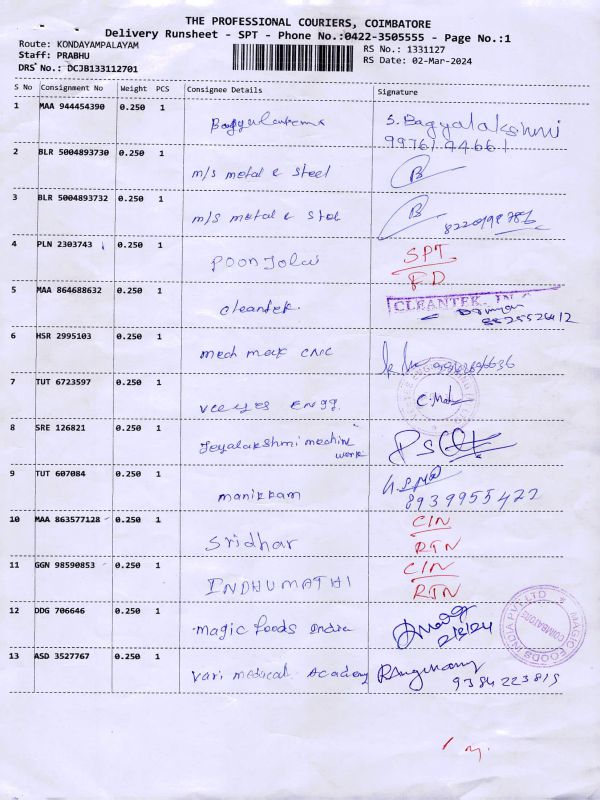 THE PROFESSIONAL COURIERS, COIMBATORE
Delivery Runsheet - SPT - Phone No.:0422-3505555 - Page No.:1
Route: KONDAYAMPALAYAM
Staff: PRABHU
DRS No.: DCJB133112701
RS No.: 1331127
RS Date: 02-Mar-2024
S No Consignment No Weight PCS Consignee Details Signature
1 MAA 944454390 0.250 1 S. Bagyalakshmi
2 BLR 5004893730 0.250 1 m/s metal & steel B
3 BLR 5004893732 0.250 1 m/s metal & B
4 PLN 2303743 0.250 1 SPT
F.D
5 MAA 864688632 0.250 1 cleantek. CLEANTEK
6 HSR 2995103 0.250 1 mech mak CNC
7 TUT 6723597 0.250 1 vee yes ENGG.
8 SRE 126821 0.250 1 Jeyalakshmi mechine
work
9 TUT 607084 0.250 1 manikkam
8939955422
10 MAA 863577128 0.250 1 Sridhar CIN
RTN
11 GGN 98590853 0.250 1 INDHUMATHI CIN
RTN
12 DDG 706646 0.250 1 magic foods India 2/3/24
MAGIC FOODS INDIA PVT LTD
COIMBATORE
13 ASD 3527767 0.250 1 vari medical Academy
9384223815